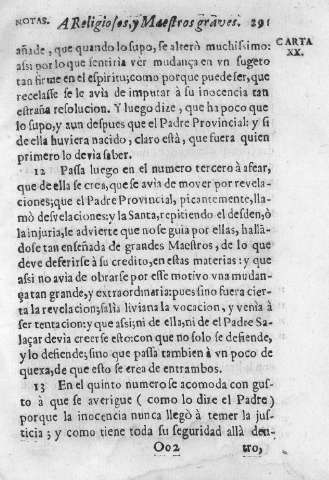 NOTAS. A Religiosos, y Maestros graves. 291
CARTA
XX.
añade, que quando lo supo, se alterò muchissimo:
assi por lo que sentiria ver mudança en vn sugeto
tan firme en el espiritu; como porque puede ser, que
recelasse se le avia de imputar à su inocencia tan
estraña resolucion. Y luego dize, que ha poco que
lo supo, y aun despues que el Padre Provincial: y si
de ella huviera nacido, claro està, que fuera quien
primero lo devia saber.
12 Passa luego en el numero tercero à afear,
que de ella se crea, que se avia de mover por revela-
ciones; que el Padre Provincial, picantemente, lla-
mò desvelaciones: y la Santa, repitiendo el desden, ò
la injuria, le advierte que no se guia por ellas, hallã-
dose tan enseñada de grandes Maestros, de lo que
deve deferirse à su credito, en estas materias: y que
assi no avia de obrarse por esse motivo vna mudan-
ça tan grande, y extraordinaria: pues sino fuera cier-
ta la revelacion; salia liviana la vocacion, y venia à
ser tentacion: y que assi; ni de ella, ni de el Padre Sa-
laçar devia creerse esto: con que no solo se defiende,
y lo defiende; sino que passa tambien à vn poco de
quexa, de que esto se crea de entrambos.
13 En el quinto numero se acomoda con gus-
to à que se averigue ( como lo dize el Padre)
porque la inocencia nunca llegò à temer la jus-
ticia; y como tiene toda su seguridad allà den-
Ooo2 tro,